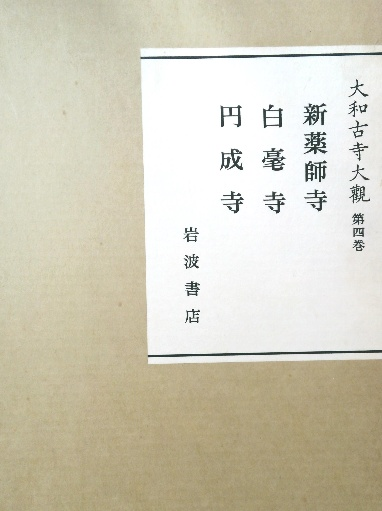 大和古寺大觀 第四巻
新薬師寺
白毫寺
円成寺
岩波書店